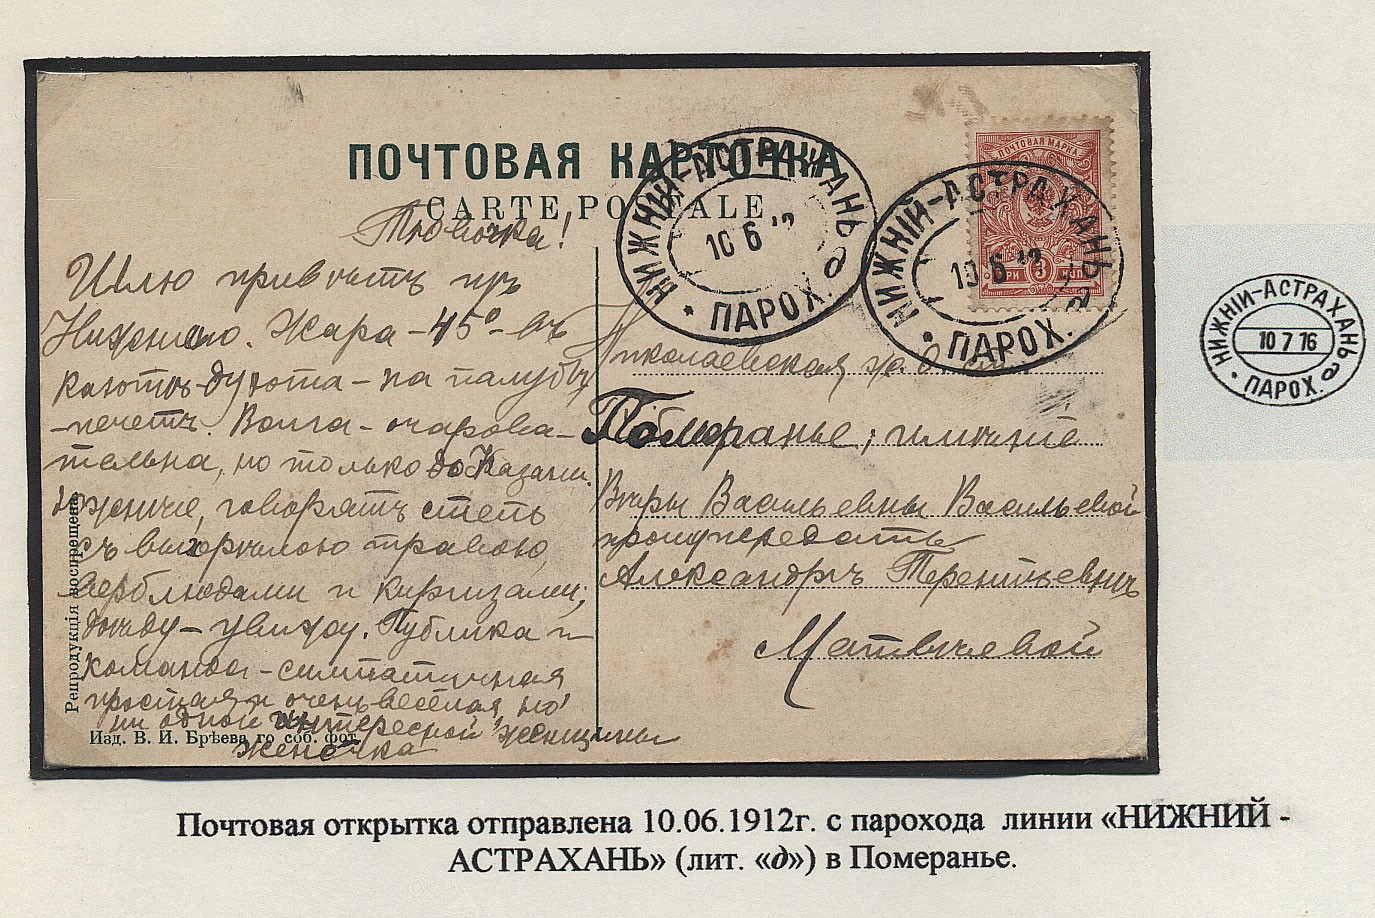 ПОЧТОВАЯ КАРТОЧКА
CARTE POSTALE
НИЖНІЙ-АСТРАХАНЬ д
10 6 12
* ПАРОХ.
НИЖНІЙ-АСТРАХАНЬ д
10 6 12
* ПАРОХ.
ПОЧТОВАЯ МАРКА
ТРИ 3 КОП
НИЖНИ-АСТРАХАНЬ д
10 7 16
* ПАРОХ.
Шлю привѣтъ изъ
Нижняго. Жара – 45° – въ
каютѣ духота – на палубѣ
– печетъ. Волга – очарова-
тельна, но только до Казани.
Южнѣе, говорятъ степь
съ выгорѣлою травою,
верблюдами и киргизами;
доѣду – увижу. Публика и
команда – симпатичная
простая и очень веселая но
ни одной интересной женщины
Женечка
Николаевская ж. д.
Померанье; имѣніе
Вѣры Васильевны Васильевой
прошу передать
Александрѣ Терентьевнѣ
Матвѣевой
Репродукція воспрещена
Изд. В. И. Брѣева го соб. фот.
Почтовая открытка отправлена 10.06.1912г. с парохода линии «НИЖНИЙ -
АСТРАХАНЬ» (лит. «д») в Померанье.